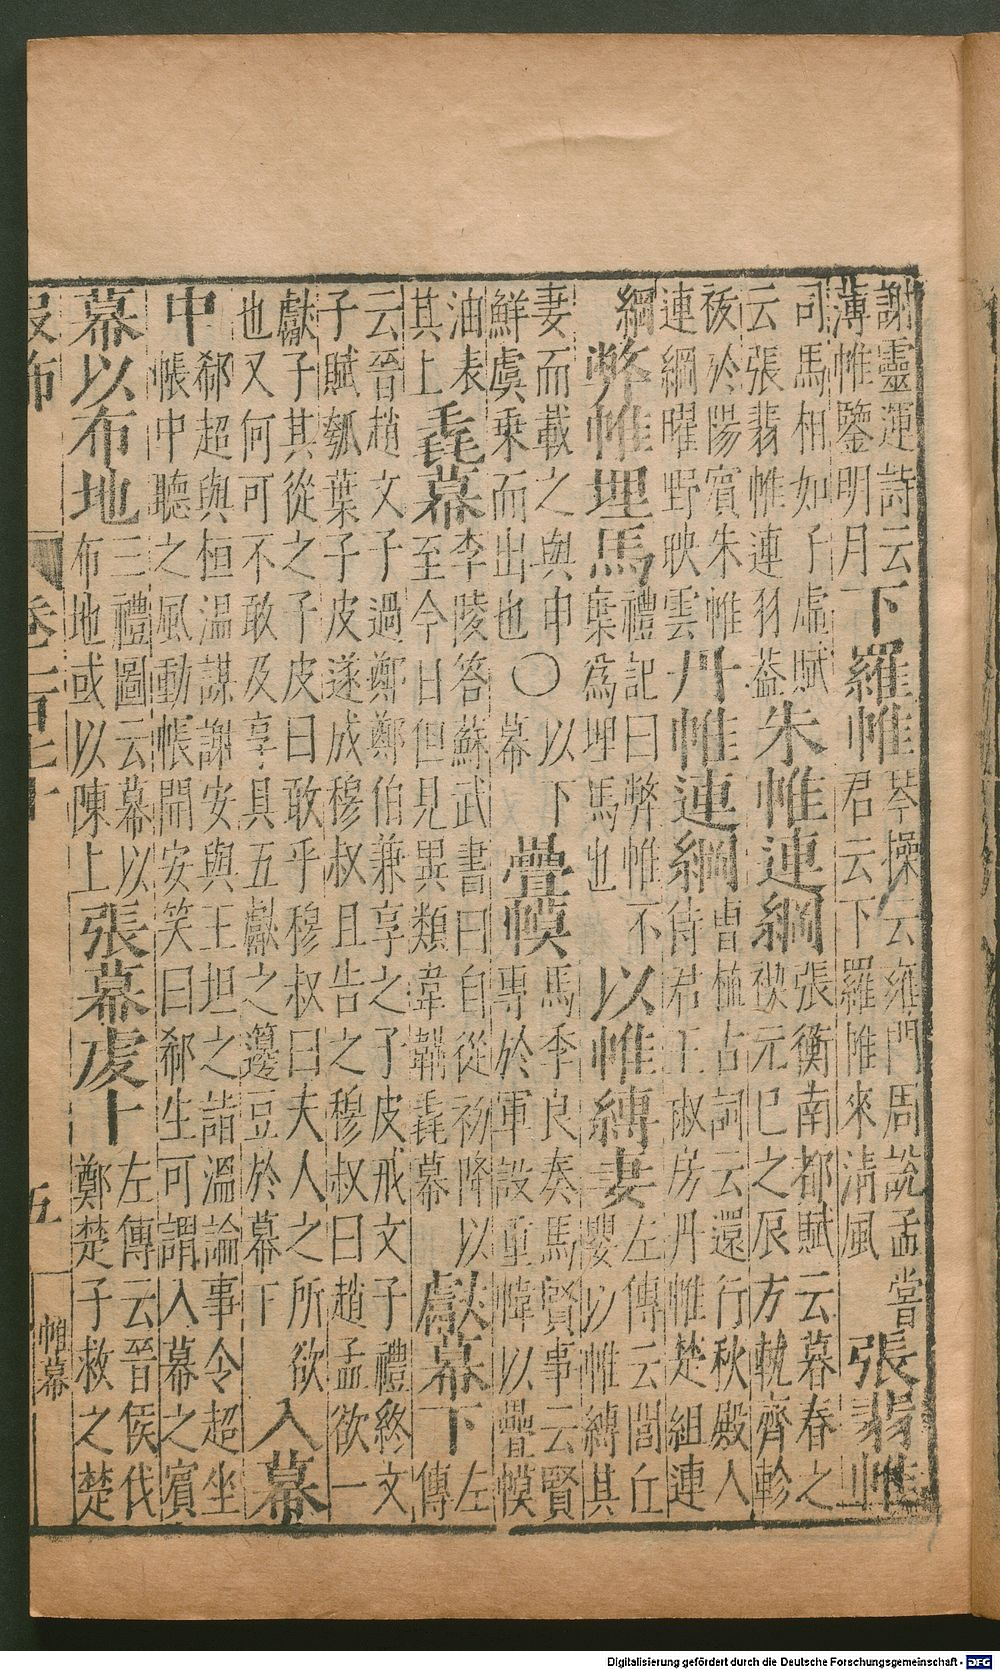 謝靈運詩云
薄帷鑒明月
下羅帷
琴操云雍門周說孟嘗
君云下羅帷來清風
張翡帷
司馬相如子虛賦
云張翡帷連羽蓋
朱帷連綱
張衡南都賦云暮春之
禊元巳之辰方軌齊軫
祓於陽濱朱帷
連綱曜野映雲
丹帷連綱
曹植古詞云還行秋殿人
侍君王椒房丹帷楚組連
綱
弊帷埋馬
禮記曰弊帷不
棄爲埋馬也
以帷縛妻
左傳云閭丘
嬰以帷縛其
妻而載之與申
鮮虞乘而出也
〇
以下
幕
疊幙
馬季良奏馬賢事云賢
專於軍設重幃以疊幙
油表
其上
毳幕
李陵答蘇武書曰自從初降以
至今日但見異類韋韝毳幕
獻幕下
左
傳
云晉趙文子過鄭鄭伯兼享之子皮戒文子禮終文
子賦瓠葉子皮遂成穆叔且告之穆叔曰趙孟欲一
獻子其從之子皮曰敢乎穆叔曰夫人之所欲
也又何可不敢及享具五獻之籩豆於幕下
入幕
中
郗超與桓溫謀謝安與王坦之詣溫論事令超坐
帳中聽之風動帳開安笑曰郗生可謂入幕之賓
幕以布地
三禮圖云幕以
布地或以陳上
張幕虡十
左傳云晉侯伐
鄭楚子救之楚
五
帕幕
Digitalisierung gefördert durch die Deutsche Forschungsgemeinschaft - DFG